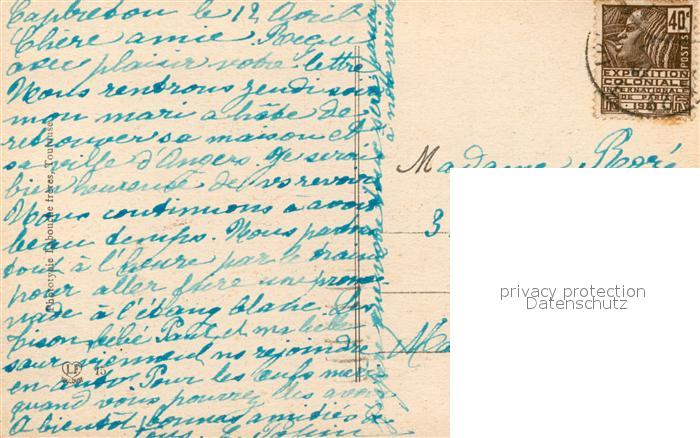 Capbreton le 12 Avril
Chère amie Reçu
avec plaisir votre lettre
Nous rentrons jeudi soir
mon mari a hâte de
retrouver sa maison et
sa ville d'Angers. Je serai
bien heureuse de vs revoir
Nous continuons à avoir
beau temps. Nous partons
tout à l'heure par le train
pour aller faire une prome
nade à l'étang blanc.
bébé Paul et ma belle
sœur viennent ns rejoindre
en auto. Pour les œufs
quand vous pourrez les avoir
A bientôt bonnes amitiés de
Phototypie Labouche frères, Toulouse
LF
15
40c
POSTES
EXPOSITION
COLONIALE
INTERNATIONALE
DE PARIS
1931
RF
Madame
3
privacy protection
Datenschutz